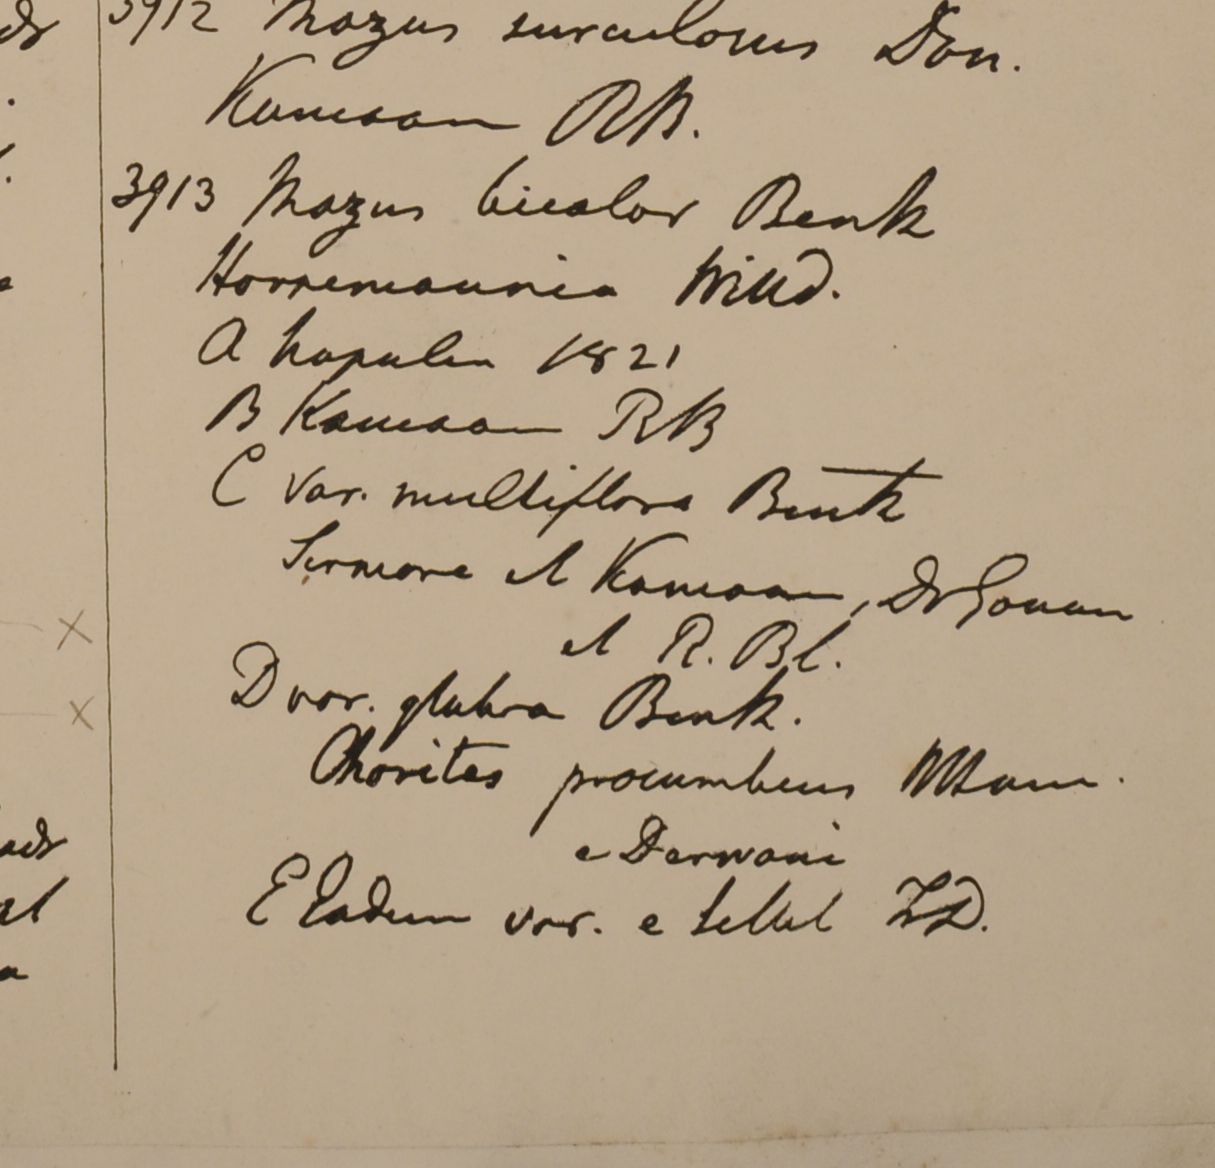 3912 Mazus surculosus Don.
Kamaon RB.
3913 Mazus bicolor Benth
Hornemannia Willd.
A Napalia 1821
B Kamaon RB
C Var. multiflora Benth
Sirmore et Kamaon, Dr Govan
et R. Bl.
D var. glabra Benth.
procumbens Wall
e
E Eadem var. e Sillet